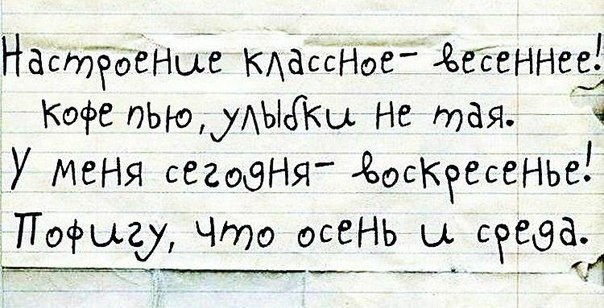 Настроение классное- весеннее!
кофе пью, улыбки не тая.
У меня сегодня- воскресенье!
Пофигу, что осень и среда.